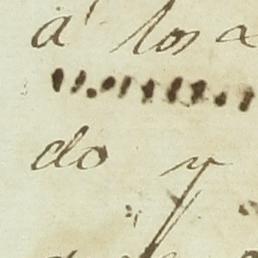 á los a
do y